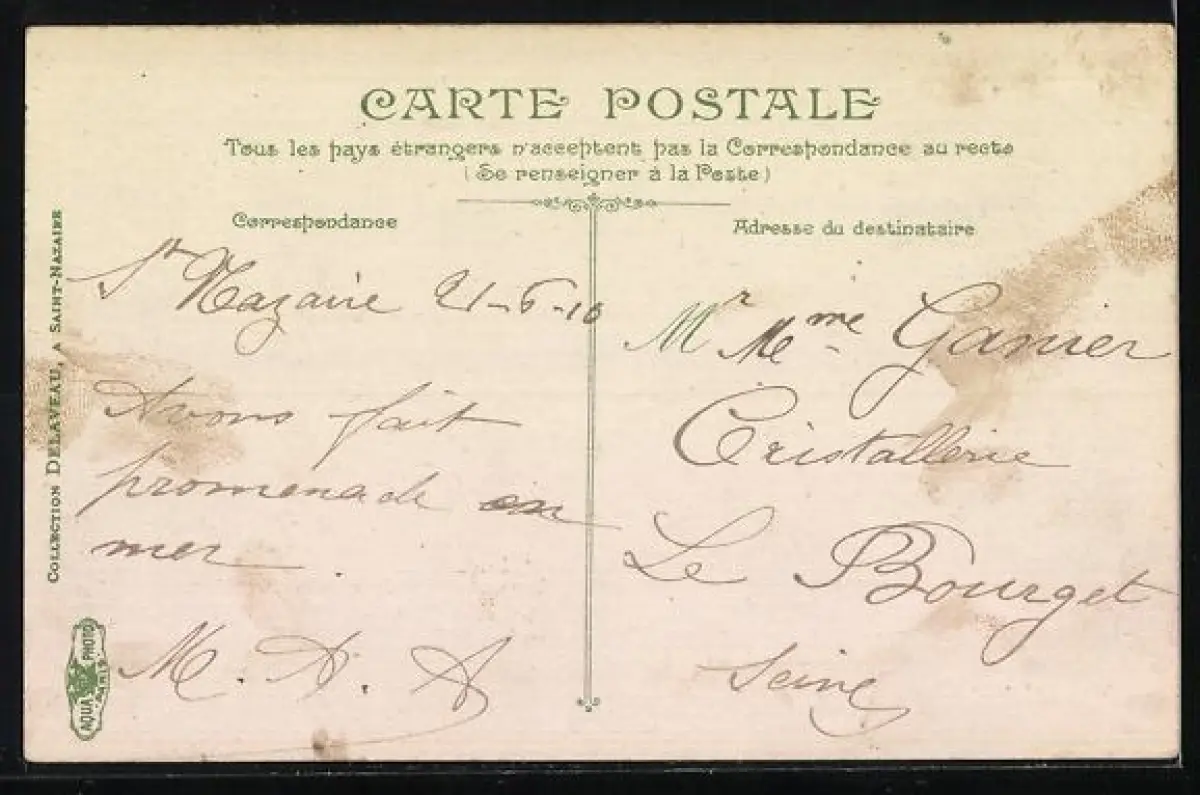 CARTE POSTALE
Tous les pays étrangers n'acceptent pas la Correspondance au recto
(Se renseigner à la Poste)
Correspondance
Adresse du destinataire
St Nazaire 21-6-10
Avons fait
promenade en
mer.
M. A. A
Mr Mme Ganier
Cristallerie
Le Bourget
Seine
COLLECTION DELAVEAU, A SAINT-NAZAIRE
AQUA PHOTO